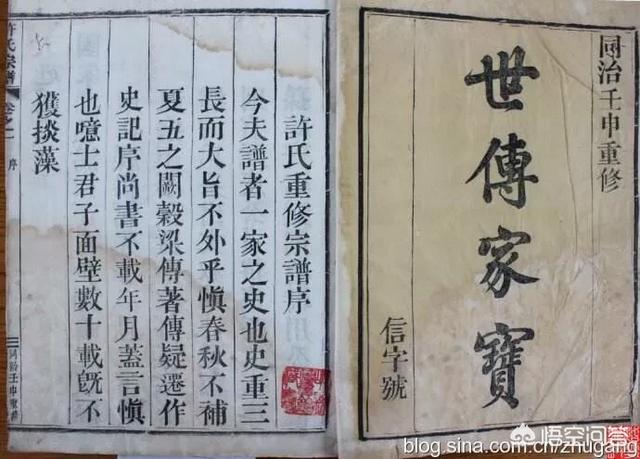 同治壬申重修
世傳家寶
信字號
許氏重修宗譜序
今夫譜者一家之史也史重三
長而大旨不外乎慎春秋不補
夏五之闕穀梁傳著傳疑遷作
史記序尚書不載年月蓋言慎
也噫士君子面壁數十載既不
獲掞藻
許氏宗譜
卷之一
序
同治壬申重修
悟空问答
blog.sina.com.cn/zhugang